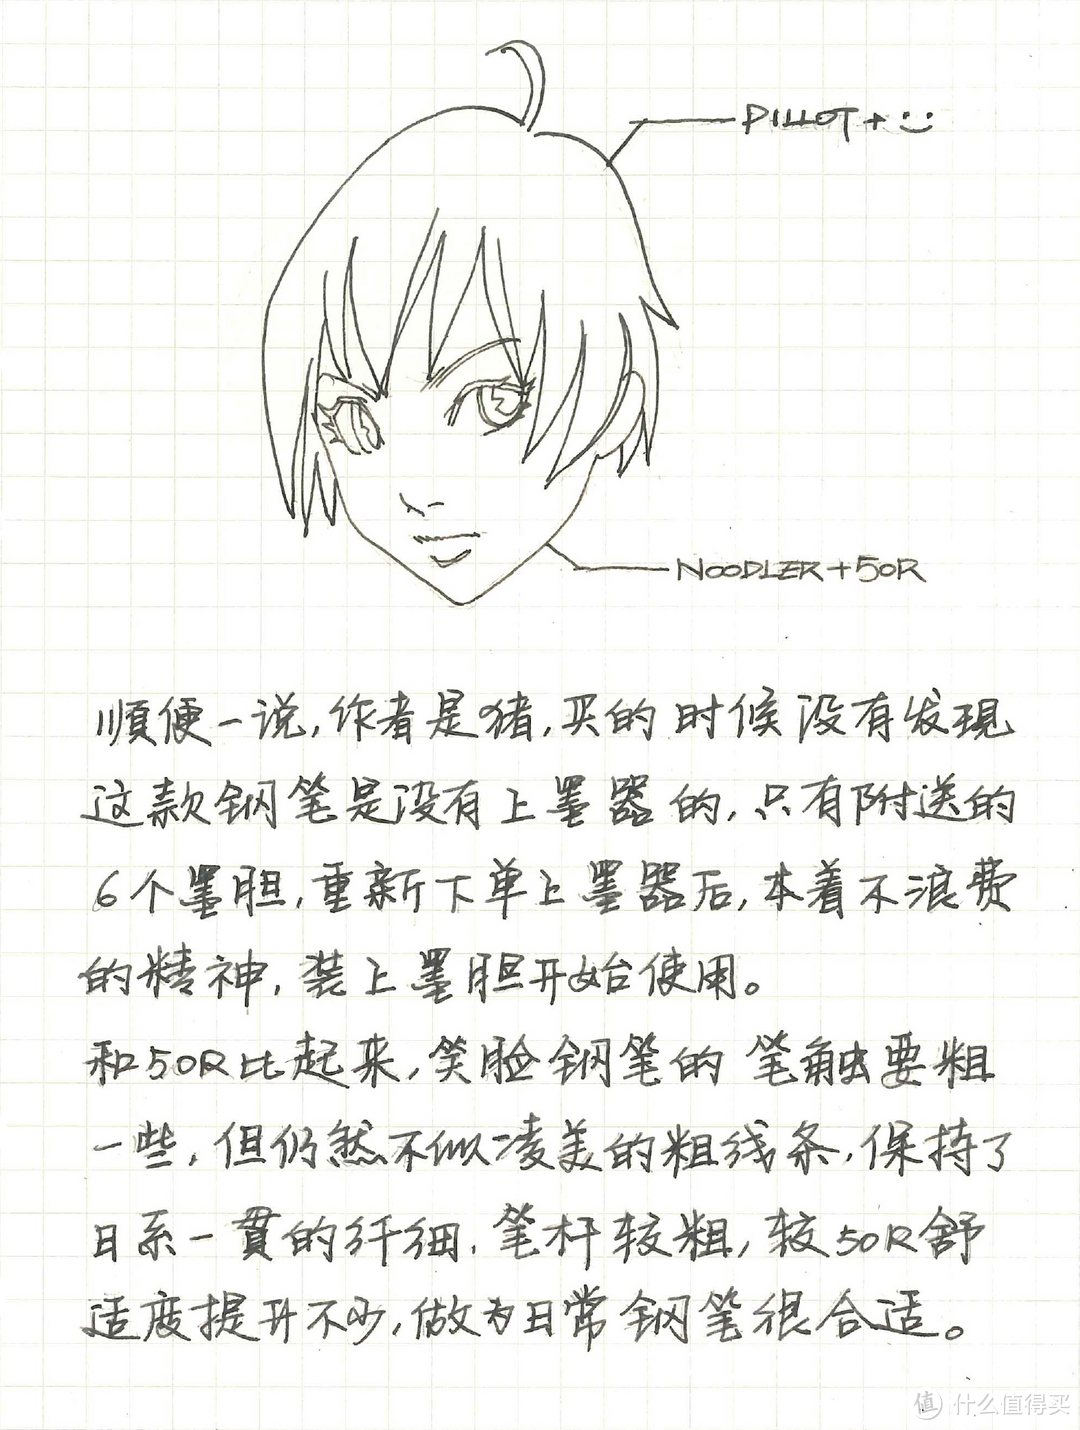 PILLOT+:)
NOODLER+50R
順便一说,作者是猪,买的时候没有发現
这款钢笔是没有上墨器的,只有附送的
6个墨胆,重新下单上墨器后,本着不浪费
的精神,装上墨胆开始使用。
和50R比起来,笑脸钢笔的笔触要粗
一些,但仍然不似凌美的粗线条,保持了
日系一貫的纤细.笔杆较粗,较50R舒
适度提升不少,做为日常钢笔很合适。
值 什么值得买